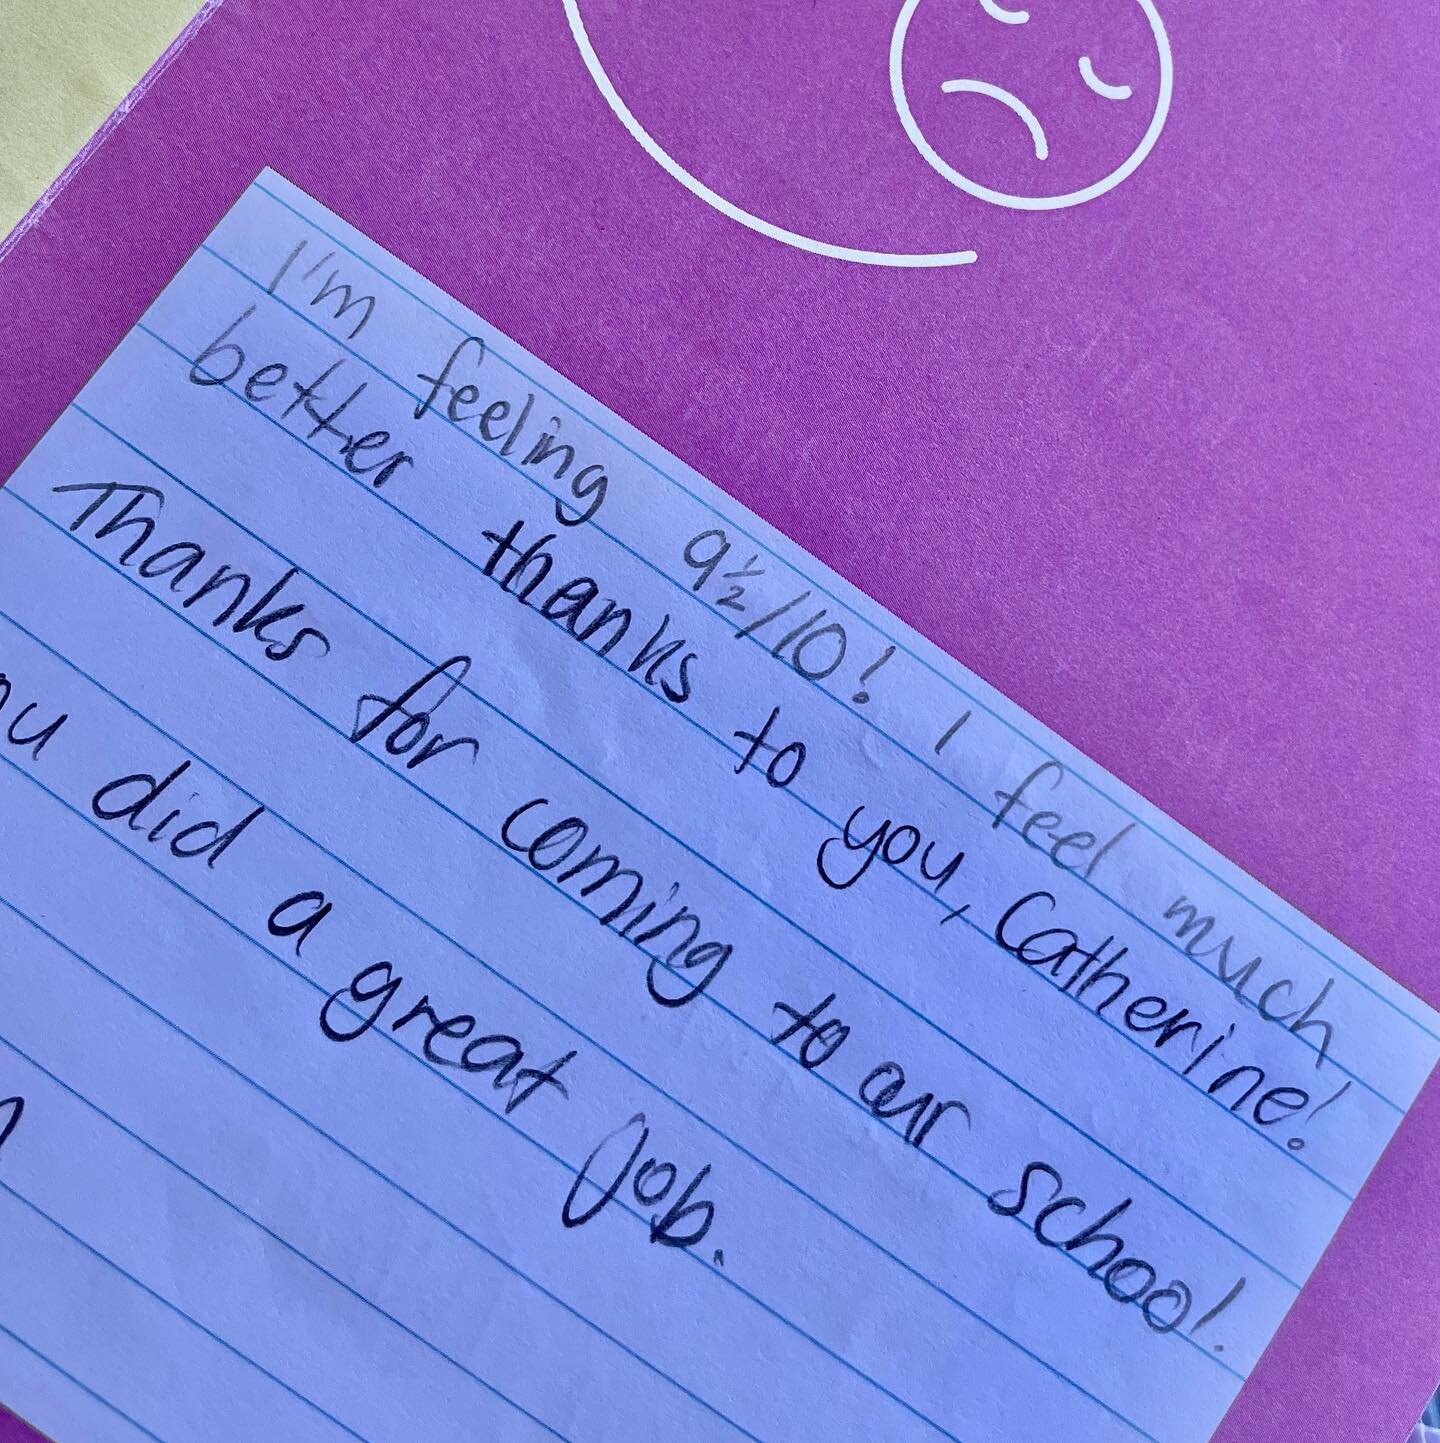 I'm feeling 9½/10! I feel much
better thanks to you, Catherine!
Thanks for coming to our school.
did a great job.